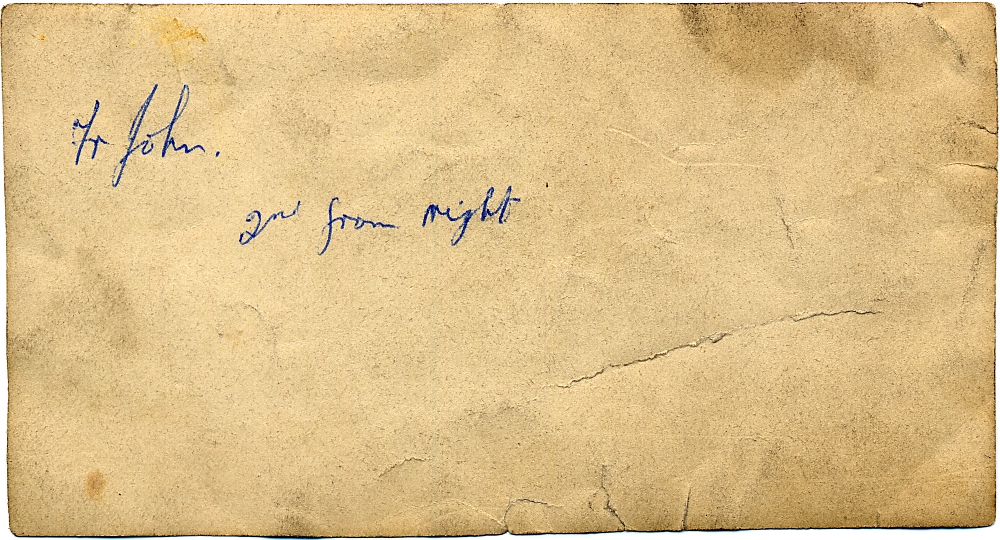 Fr John.
2nd from right